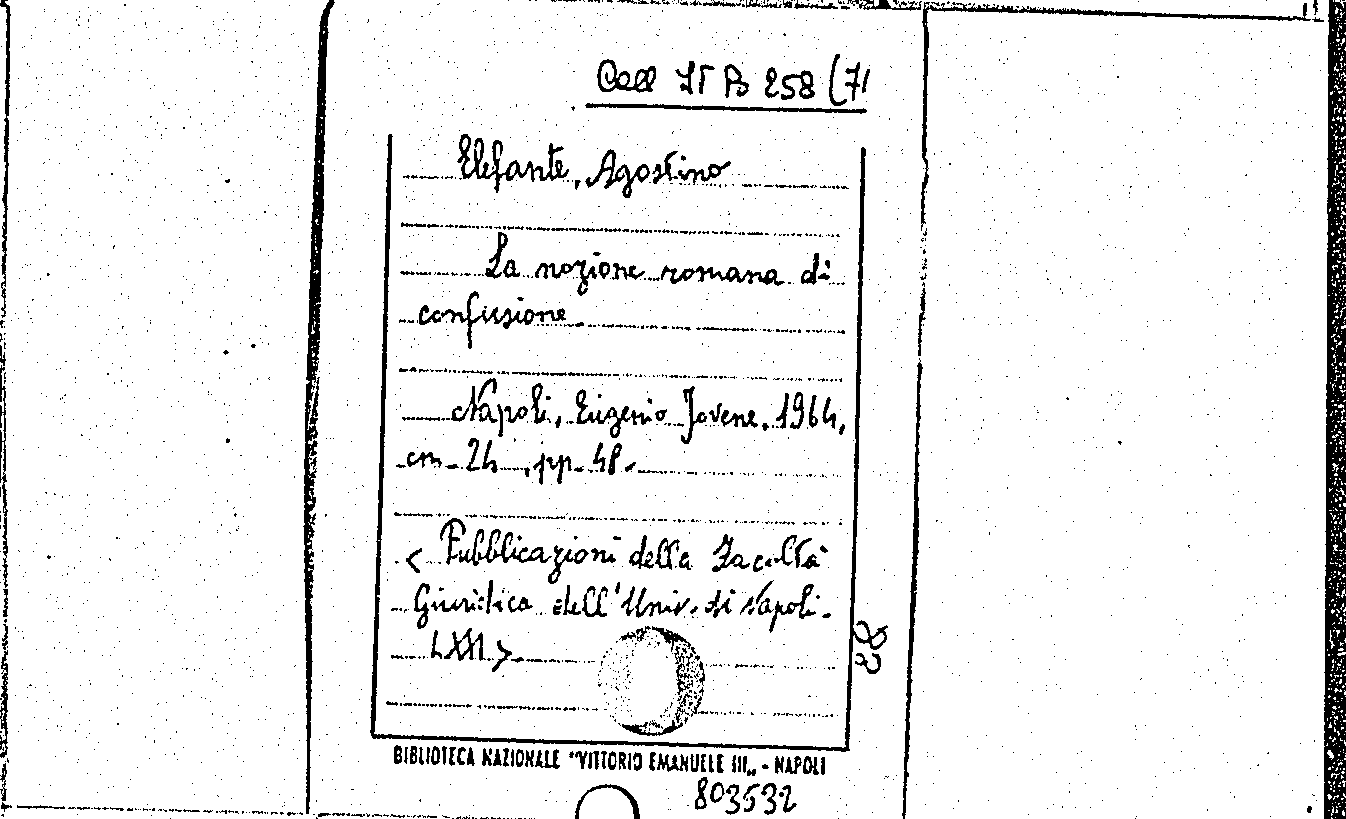 Coll. It B 258 (71
Elefante, Agostino
La nozione romana di
confusione
Napoli, Eugenio Jovene, 1964,
cm. 24, pp. 48.
< Pubblicazioni della Facoltà
Giuridica dell'Univ. di Napoli.
LXXI >.
82
BIBLIOTECA NAZIONALE "VITTORIO EMANUELE III„ - NAPOLI
803532